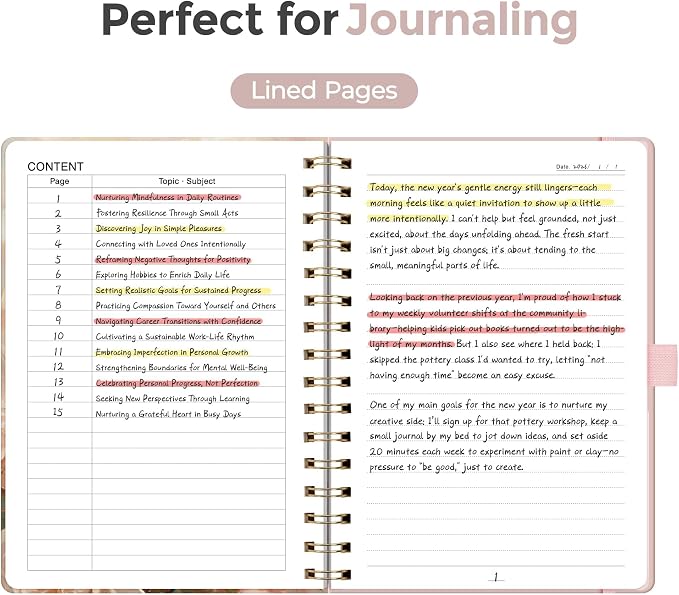 Perfect for Journaling
Lined Pages
CONTENT
Page Topic · Subject
1 Nurturing Mindfulness in Daily Routines
2 Fostering Resilience Through Small Acts
3 Discovering Joy in Simple Pleasures
4 Connecting with Loved Ones Intentionally
5 Reframing Negative Thoughts for Positivity
6 Exploring Hobbies to Enrich Daily Life
7 Setting Realistic Goals for Sustained Progress
8 Practicing Compassion Toward Yourself and Others
9 Navigating Career Transitions with Confidence
10 Cultivating a Sustainable Work-Life Rhythm
11 Embracing Imperfection in Personal Growth
12 Strengthening Boundaries for Mental Well-Being
13 Celebrating Personal Progress, Not Perfection
14 Seeking New Perspectives Through Learning
15 Nurturing a Grateful Heart in Busy Days
Date. 2026/ 1 / 1
Today, the new year's gentle energy still lingers—each
morning feels like a quiet invitation to show up a little
more intentionally. I can't help but feel grounded, not just
excited, about the days unfolding ahead. The fresh start
isn't just about big changes; it's about tending to the
small, meaningful parts of life.
Looking back on the previous year, I'm proud of how I stuck
to my weekly volunteer shifts at the community li-
brary—helping kids pick out books turned out to be the high-
light of my months. But I also see where I held back; I
skipped the pottery class I'd wanted to try, letting "not
having enough time" become an easy excuse.
One of my main goals for the new year is to nurture my
creative side; I'll sign up for that pottery workshop, keep a
small journal by my bed to jot down ideas, and set aside
20 minutes each week to experiment with paint or clay—no
pressure to "be good," just to create.
1